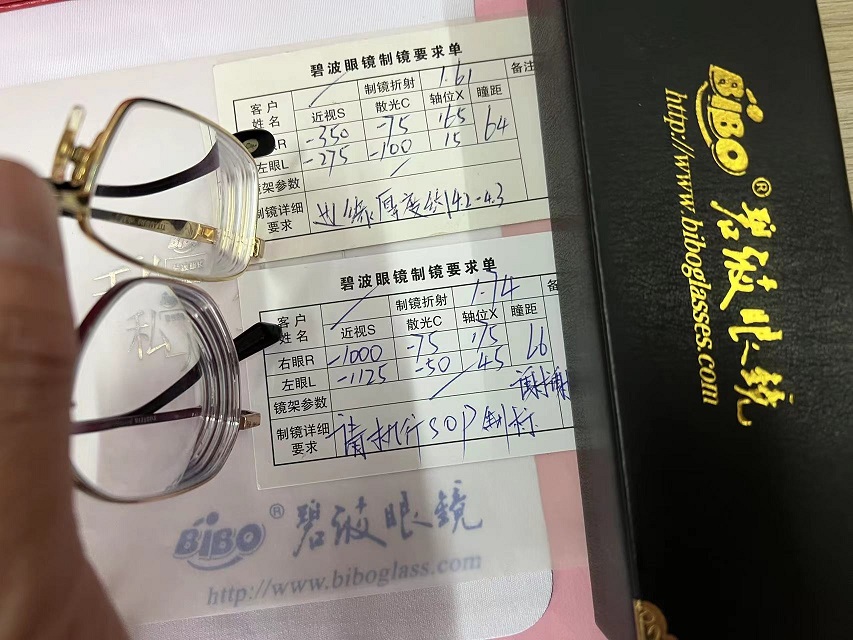 碧波眼镜制镜要求单
客户
姓名
制镜折射
1.61
备注
近视S
散光C
轴位X
瞳距
眼R
-350
-75
165
64
左眼L
-275
-100
15
镜架参数
制镜详细
要求
边缘厚度
4.2-4.3
碧波眼镜制镜要求单
客户
姓名
制镜折射
1.74
备
近视S
散光C
轴位X
瞳距
右眼R
-1000
-75
175
66
左眼L
-1125
-50
45
镜架参数
谢谢
制镜详细
要求
请执行SOP制标
BiBO® 碧波眼镜
http://www.biboglass.com
BiBO® 碧波眼镜
http://www.biboglasses.com